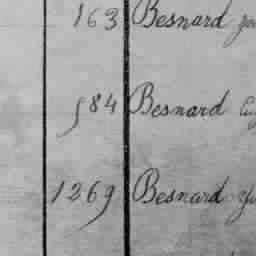 163 Besnard
584 Besnard
1269 Besnard